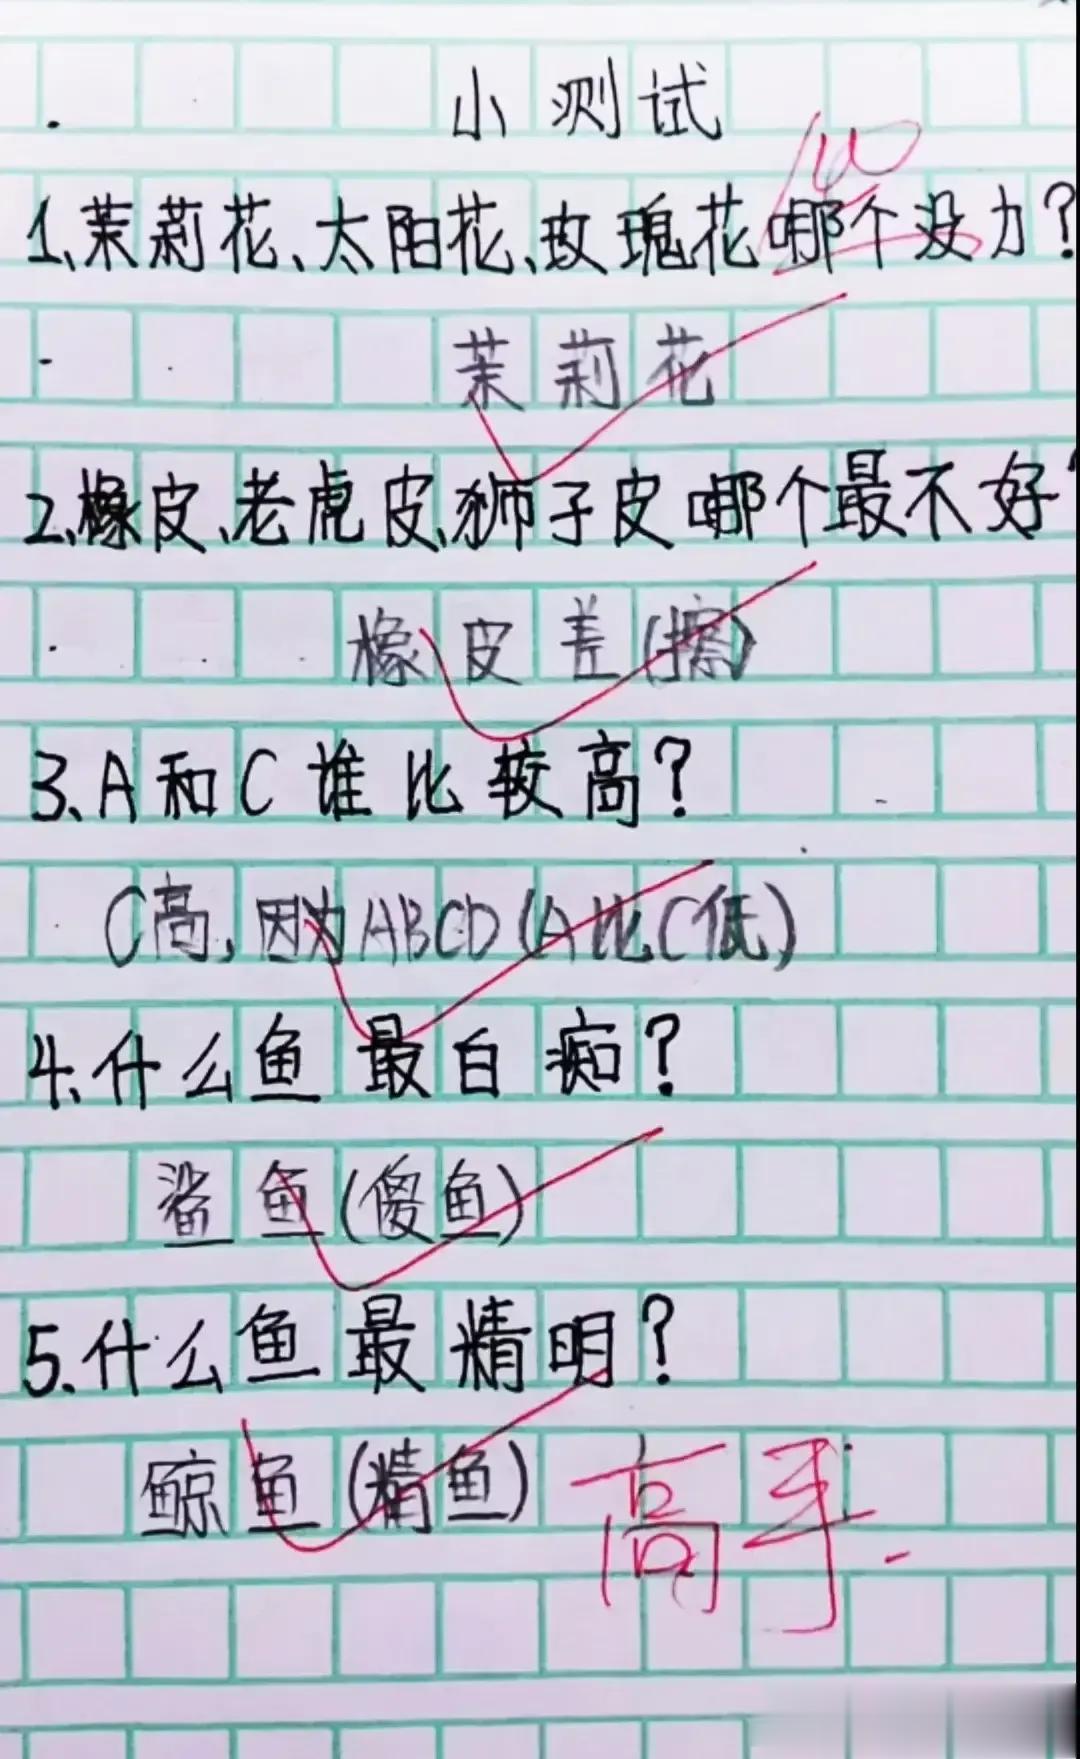 小测试
100
1、茉莉花、太阳花、玫瑰花哪个没力?
茉莉花
2、橡皮、老虎皮、狮子皮哪个最不好?
橡皮差(擦)
3、A和C谁比较高?
C高,因为ABCD(A比C低)
4、什么鱼最白痴?
鲨鱼(傻鱼)
5.什么鱼最精明?
鲸鱼(精鱼)
高手.